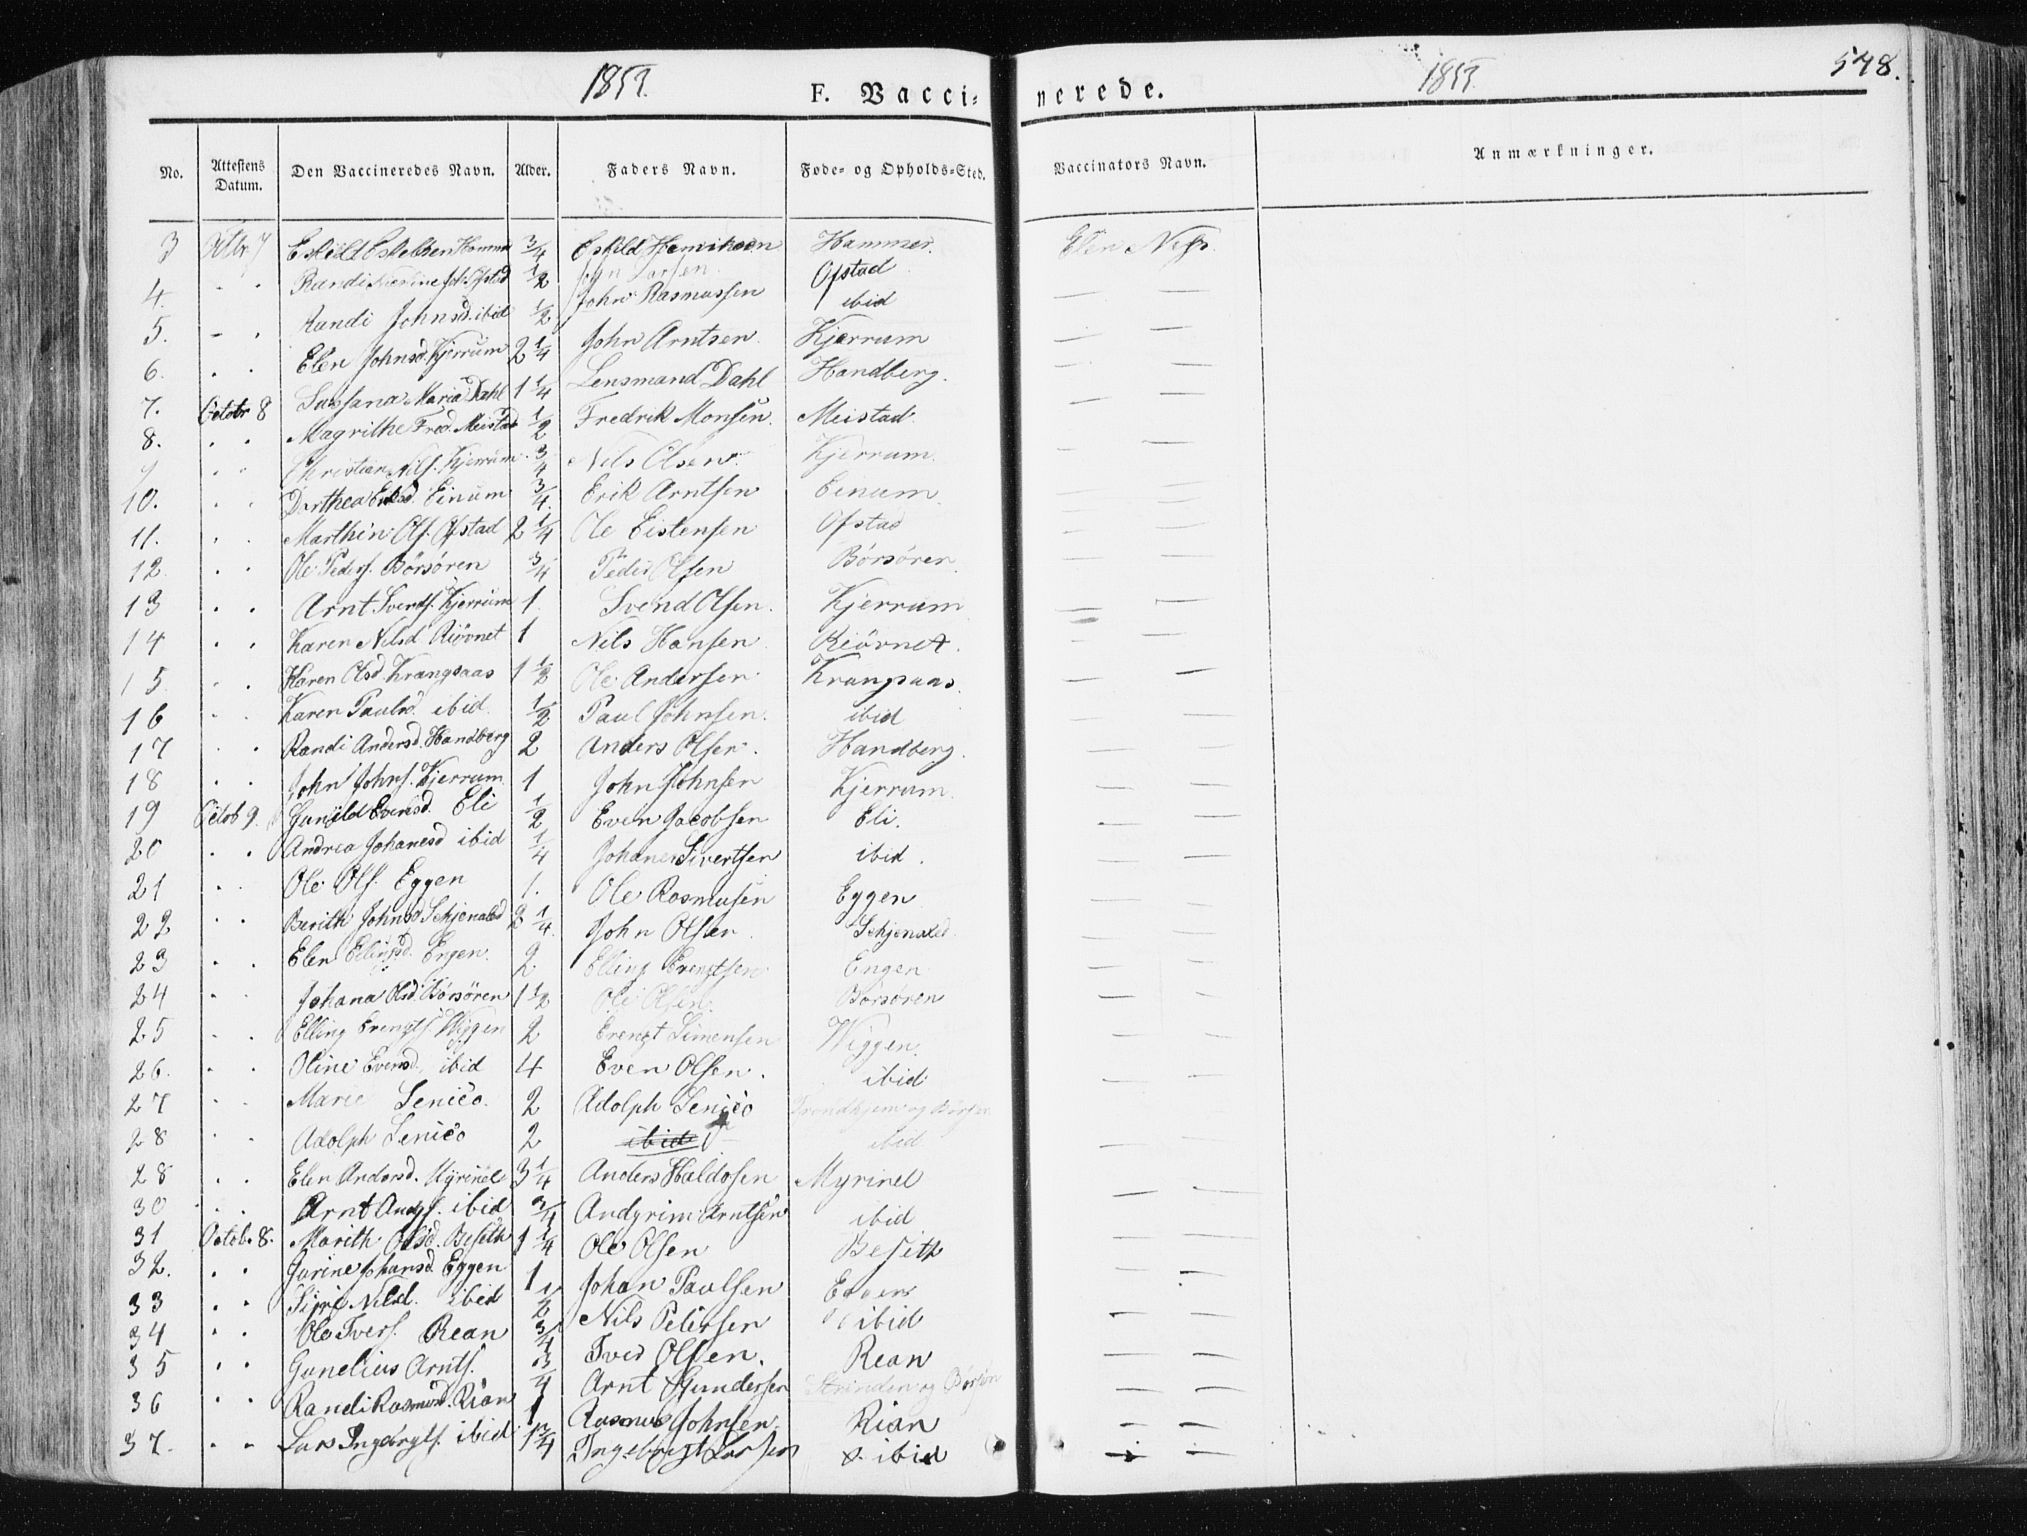 1853. F. Vacci- nerede. 1853. 578.
No. Attestens Datum. Den Vaccineredes Navn. Alder. Faders Navn. Føde- og Opholds-Sted. Vaccinators Navn. Anmærkninger.
3 Octbr 7 Eskild Eskeldsen Hammer 3/4 Eskild Hammer. Elen
4. " " Randi Joh. Ofstad 1/2 Ofstad — —
5. - " Randi Johnsd. ibid 1/2 John Rasmussen ibid — —
6. " " Elen Johnsd. Kjerrum 2 1/4 John Arntsen Kjerrum — —
7. Octobr 8 Sussana Maria Dahl 1 1/4 Lensmand Dahl Handberg. — —
8. " " Magrithe Fred. Meistad 1/2 Fredrik Monsen. Meistad — —
9 " " Christian Nils. Kjerrum. 3/4 Nils Olsen. Kjerrum. — —
10. " " Dorthea Eriksd. Einum 3/4 Erik Arntsen Einum — —
11. " " Marthin Ols. Ofstad 2 1/4 Ole Eistensen Ofstad — —
12 " " Ole Peders. Börsören 3/4 Peder Olsen Börsören — —
13 " " Arnt Svends. Kjerrum 1. Svend Olsen. Kjerrum — —
14 " " Karen Nilsd Riövnet 1 Nils Hansen Riövnet. — —
15 " " Karen Olsd. Krangsaas 1 1/2 Ole Andersen Krangsaas. — —
16 " " Karen Paulsd. ibid. 1/2 Paul Johnsen. ibid — —
17 " " Randi Andersd. Handberg 2 Anders Olsen. Handberg. — —
18 " " John Johns. Kjerrum. 1 John Johnsen Kjerrum. — —
19 Octob 9. Gunild Evensd. Eli 1/2 Even Jacobsen Eli. — —
20 " " Andrea Johanesd ibid 1/4 Johanes Sivertsen ibid. — —
21 " " Ole Ols. Eggen 1. Ole Rasmusen Eggen — —
22 " " Berith Johnsd Schjenald 2 1/4. John Olsen Schjenald — —
23 " " Elen Elingsd. Engen. 2 Elling Engen — —
24 " " Johana Olsd. Börsören 1 1/2 Ole Olsen. Börsören — —
25 " " Elling Wiggen 2 Simensen Wiggen. — —
26. " " Oline Evensd. ibid 4 Even Olsen. ibid — —
27 " " Marie Lenico. 2 Adolph Lenico Trondhjem og Börsen — —
28 " " Adolph Lenico 2 ibid ibid — —
28 " " Elen Andersd. Myrinel 3 1/4 Anders Haldosen Myrinel — —
30 " " Arnt ibid 3/4 Andgrim Arntsen ibid — —
31 Octob. 8. Marith Olsd. Besith 1 1/4 Ole Olsen Besith — —
32. " " Johansd Eggen 1 Johan Paulsen Eggen — —
33 " " Siri Nilsd. ibid 1/2 Nils Petersen ibid — —
34 " " Ole Ivers. Rean 3/4 Iver Olsen. Rean — —
35 " " Gunelius Arnts. 3/4 Arnt Gundersen Strinden og Börsen — —
36 " " Randi Rasmusd. Rian 1 Rasmus Johnsen Rian — —
37. " " Lars Ingebrygts. ibid 1 3/4 Ingebrygt Larsen ibid — —